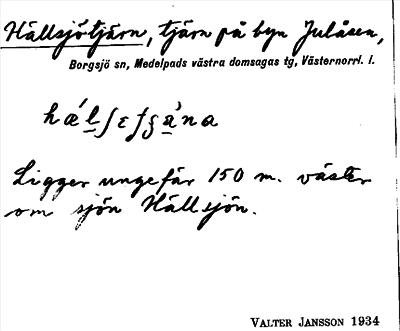 Hällsjötjärn, tjärn på byn Julåsen,
Borgsjö sn, Medelpads västra domsagas tg, Västernorrl. l.
Ligger ungefär 150 m. väster
om sjön Hällsjön.
VALTER JANSSON 1934